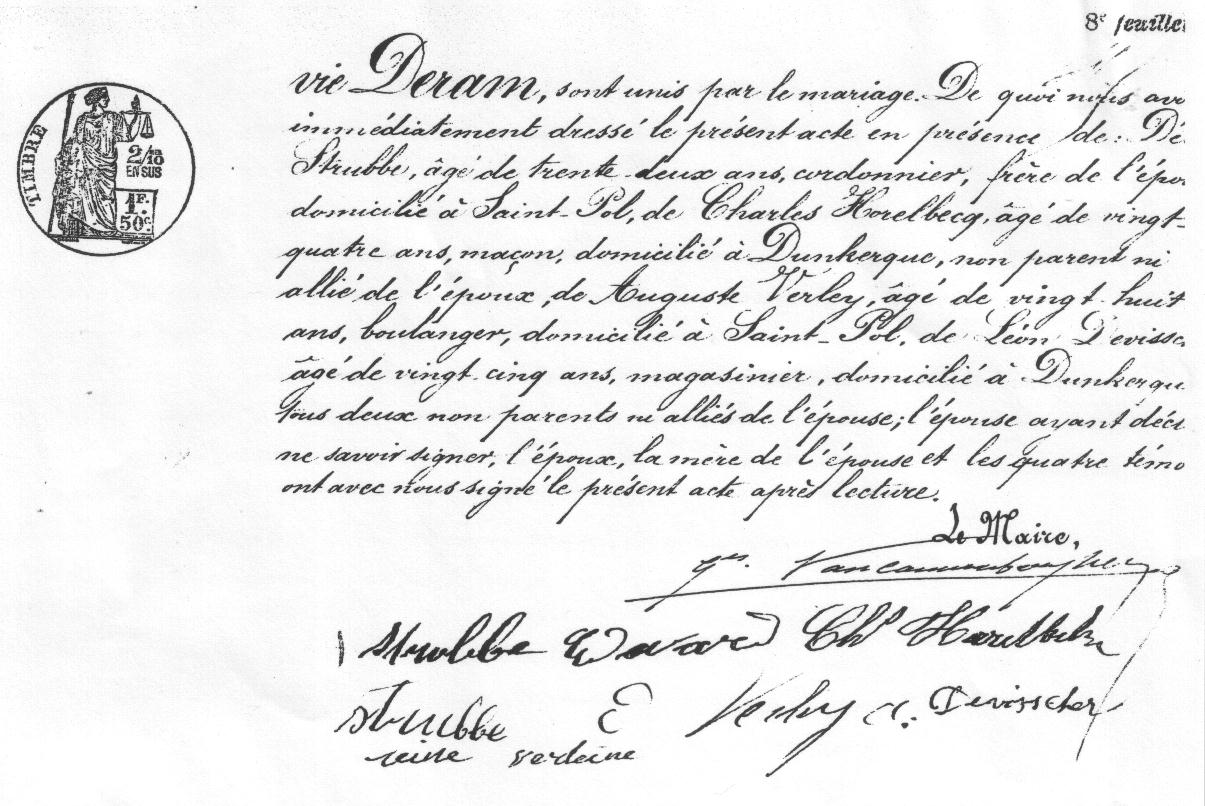 8e feuillet
TIMBRE
2/10 EN SUS
1F. 50c.
vie Deram, sont unis par le mariage. De quoi nous avo
immédiatement dressé le présent acte en présence de: Dé
Strubbe, âgé de trente-deux ans, cordonnier, frère de l'épou
domicilié à Saint-Pol, de Charles Horelbecq, âgé de vingt-
quatre ans, maçon, domicilié à Dunkerque, non parent ni
allié de l'époux, de Auguste Verley, âgé de vingt-huit
ans, boulanger, domicilié à Saint-Pol, de Léon Devissc
âgé de vingt-cinq ans, magasinier, domicilié à Dunkerqu
tous deux non parents ni alliés de l'épouse; l'épouse ayant décl
ne savoir signer, l'époux, la mère de l'épouse et les quatre témo
ont avec nous signé le présent acte après lecture.
Le Maire,
strubbe Edward Chs
strubbe E Verley Devisscher
reine